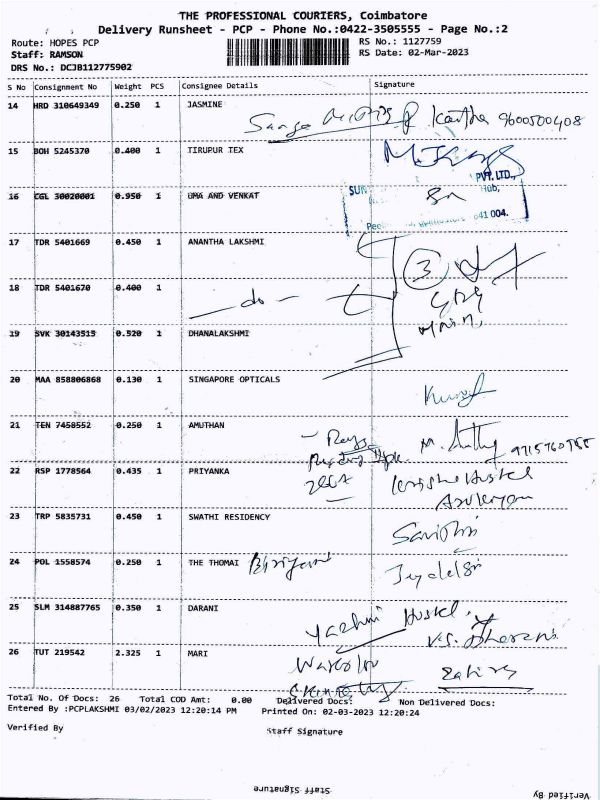 THE PROFESSIONAL COURIERS, Coimbatore
Delivery Runsheet - PCP - Phone No.:0422-3505555 - Page No.:2
Route: HOPES PCP
RS No.: 1127759
Staff: RAMSON
RS Date: 02-Mar-2023
DRS No.: DCJB112775902
S No Consignment No Weight PCS Consignee Details Signature
14 HRD 310649349 0.250 1 JASMINE
Kartha 9600500408
15 BOH 5245370 0.400 1 TIRUPUR TEX
PVT. LTD.,
SUN Hub,
16 CGL 30020001 0.950 1 UMA AND VENKAT
641 004.
17 TDR 5401669 0.450 1 ANANTHA LAKSHMI
3
18 TDR 5401670 0.400 1
do
19 SVK 30143515 0.520 1 DHANALAKSHMI
20 MAA 858806868 0.130 1 SINGAPORE OPTICALS
21 TEN 7458552 0.250 1 AMUTHAN
22 RSP 1778564 0.435 1 PRIYANKA
23 TRP 5835731 0.450 1 SWATHI RESIDENCY
24 POL 1558574 0.250 1 THE THOMAI Biriyani
25 SLM 314887765 0.350 1 DARANI
Yazhini Hostel
V.S. Dharani
26 TUT 219542 2.325 1 MARI
Total No. Of Docs: 26 Total COD Amt: 0.00 Delivered Docs: Non Delivered Docs:
Entered By :PCPLAKSHMI 03/02/2023 12:20:14 PM Printed On: 02-03-2023 12:20:24
Verified By Staff Signature
Staff Signature Verified By